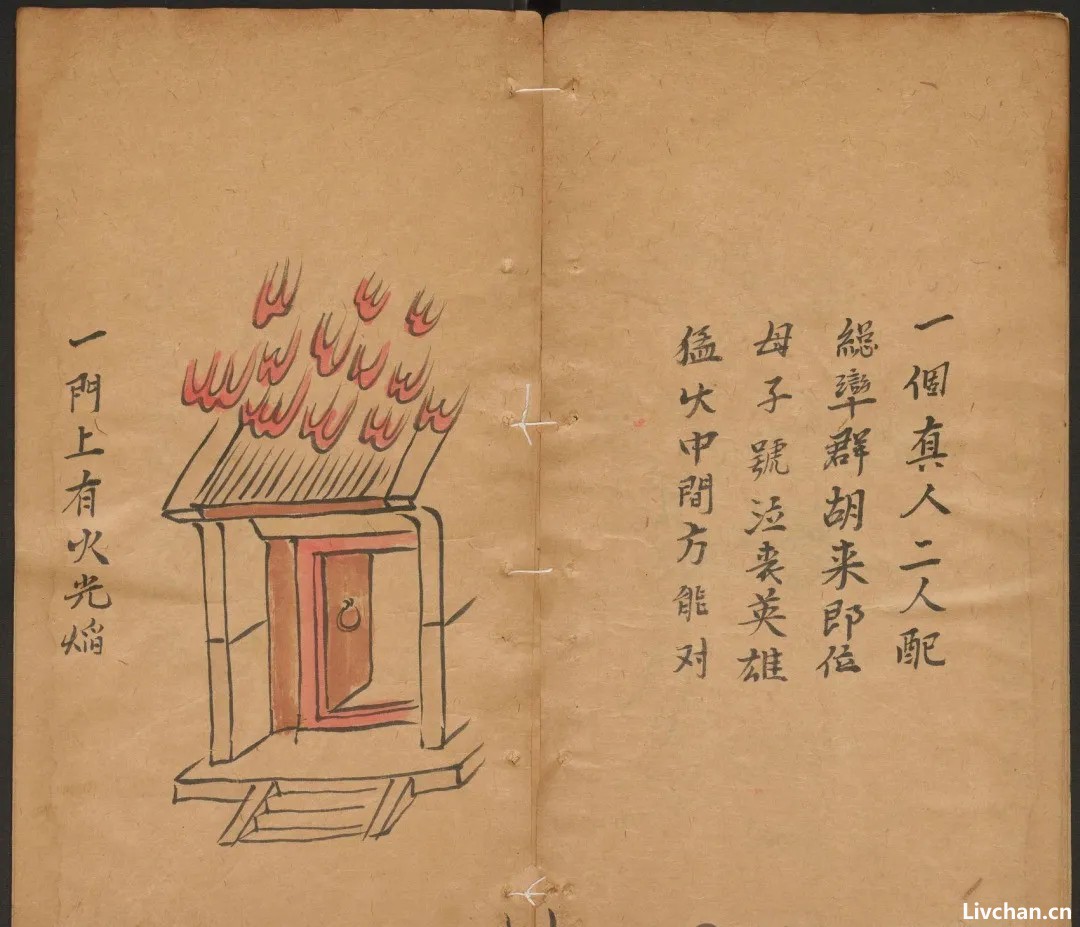 一個真人二人配
總犖群胡来即位
母子號泣丧英雄
猛火中間方能对
一門上有火光焰
Livchan.cn